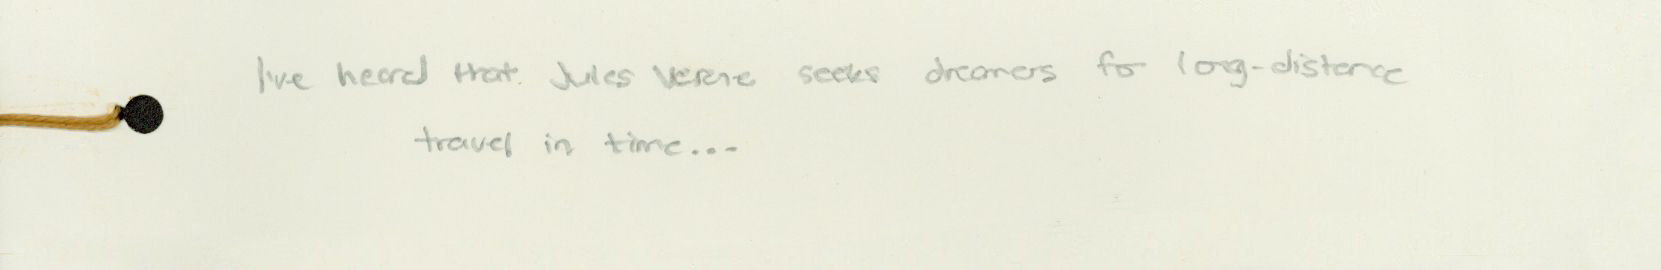 I've heard that Jules Verne seeks dreamers for long-distance
travel in time...